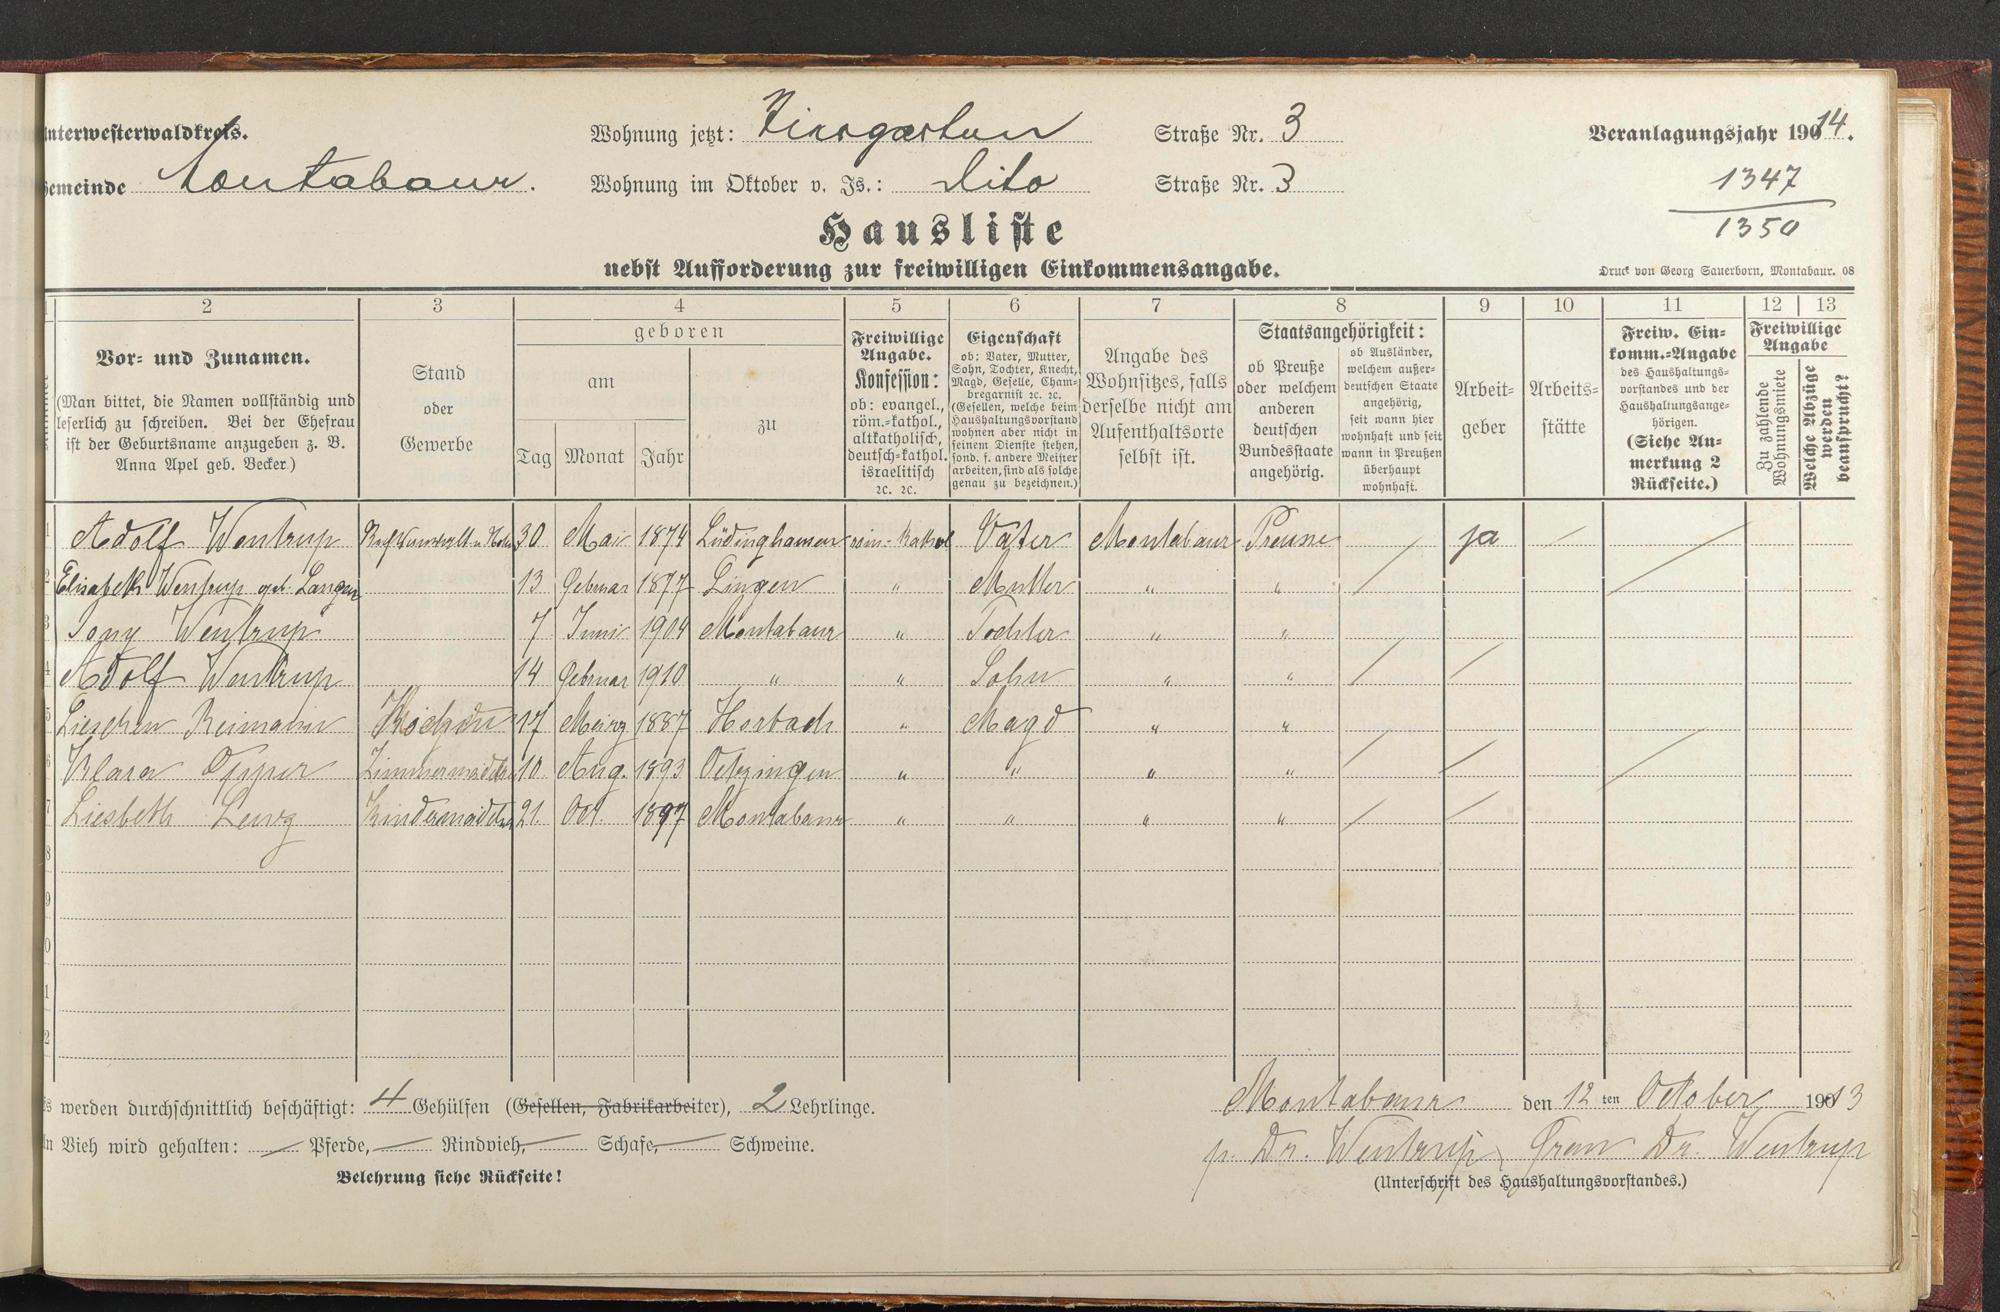 Unterwesterwaldkreis. Wohnung jetzt: Tiergarten Straße Nr. 3 Veranlagungsjahr 19014.
Gemeinde Montabaur. Wohnung im Oktober v. Js.: Dito Straße Nr. 3
1347
1350
Hausliste
nebst Aufforderung zur freiwilligen Einkommensangabe.
Druck von Georg Sauerborn, Montabaur. 08
1 2 3 4 5 6 7 8 9 10 11 12 13
Vor- und Zunamen.
(Man bittet, die Namen vollständig und
leserlich zu schreiben. Bei der Ehefrau
ist der Geburtsname anzugeben z. B.
Anna Apel geb. Becker.)
Stand
oder
Gewerbe
geboren
am
zu
Tag Monat Jahr
Freiwillige
Angabe.
Konfession:
ob: evangel.,
röm.-kathol.,
altkatholisch,
deutsch-kathol.
israelitisch
ꝛc. ꝛc.
Eigenschaft
ob: Vater, Mutter,
Sohn, Tochter, Knecht,
Magd, Geselle, Cham-
bregarnist ꝛc. ꝛc.
(Gesellen, welche beim
Haushaltungsvorstand
wohnen aber nicht in
seinem Dienste stehen,
sond. f. andere Meister
arbeiten, sind als solche
genau zu bezeichnen.)
Angabe des
Wohnsitzes, falls
derselbe nicht am
Aufenthaltsorte
selbst ist.
Staatsangehörigkeit:
ob Preuße
oder welchem
anderen
deutschen
Bundesstaate
angehörig.
ob Ausländer,
welchem außer-
deutschen Staate
angehörig,
seit wann hier
wohnhaft und seit
wann in Preußen
überhaupt
wohnhaft.
Arbeit-
geber
Arbeits-
stätte
Freiw. Ein-
komm.-Angabe
des Haushaltungs-
vorstandes und der
Haushaltungsange-
hörigen.
(Siehe An-
merkung 2
Rückseite.)
Freiwillige
Angabe
Zu zahlende
Wohnungsmiete
Welche Abzüge
werden
beansprucht?
1 Adolf Wentrup 30 Mai 1874 Lüdinghausen röm.-kathol Vater Montabaur Preusse ja
2 Elisabeth Wentrup geb. Langen 13 Februar 1877 Lingen " Mutter " "
3 Tony Wentrup 7 Juni 1904 Montabaur " Tochter " "
4 Adolf Wentrup 14 Februar 1910 " " Sohn " "
5 Lieschen Reimann Köchin 17 März 1887 Horbach " Magd " "
6 Klara Opper Zimmermädchen 10 Aug. 1893 Oetzingen " " " "
7 Liesbeth Kindermädchen 21. Oct. 1897 Montabaur " " " "
8
9
0
1
2
Es werden durchschnittlich beschäftigt: 4 Gehülfen (Gesellen, Fabrikarbeiter), 2 Lehrlinge.
An Vieh wird gehalten: Pferde, Rindvieh, Schafe, Schweine.
Belehrung siehe Rückseite!
Montabaur den 12 ten October 19013
p. Dr. Wentrup, Frau Dr. Wentrup
(Unterschrift des Haushaltungsvorstandes.)